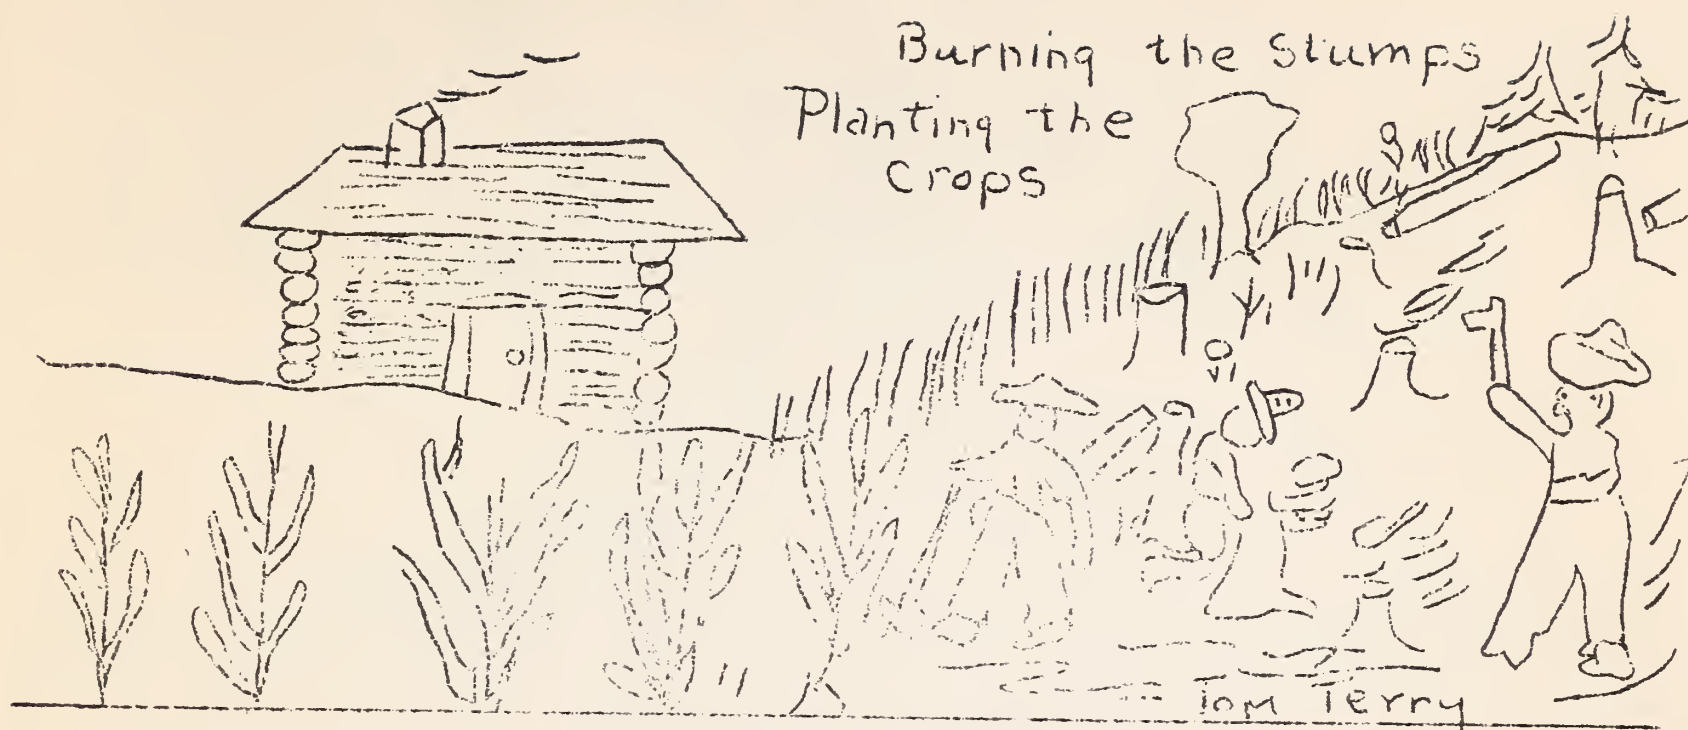 Burning the Stumps
Planting the
Crops
Tom Terry